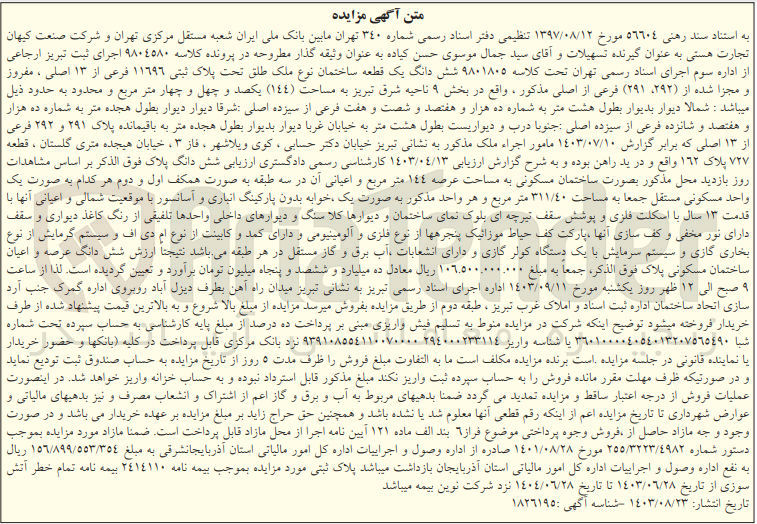 متن آگهی مزایده
به استناد سند رهنی ۵۶۶۰۴ مورخ ۱۳۹۷/۰۸/۱۲ تنظیمی دفتر اسناد رسمی شماره ۳۴۰ تهران مابین بانک ملی ایران شعبه مستقل مرکزی تهران و شرکت صنعت کیهان
تجارت هستی به عنوان گیرنده تسهیلات و آقای سید جمال موسوی حسن کیاده به عنوان وثیقه گذار مطروحه در پرونده کلاسه ۹۸۰۴۵۸۰ اجرای ثبت تبریز ارجاعی
از اداره سوم اجرای اسناد رسمی تهران تحت کلاسه ۹۸۰۱۸۰۵ شش دانگ یک قطعه ساختمان نوع ملک طلق تحت پلاک ثبتی ۱۱۶۹۶ فرعی از ۱۳ اصلی ، مفروز
و مجزا شده از (۲۹۲، ۲۹۱) فرعی از اصلی مذکور ، واقع در بخش ۹ ناحیه شرق تبریز به مساحت (۱۴۴) یکصد و چهل و چهار متر مربع و محدود به حدود ذیل
میباشد : شمالا دیوار بدیوار بطول هشت متر به شماره ده هزار و هفتصد و شصت و هفت فرعی از سیزده اصلی :شرقا دیوار دیوار بطول هجده متر به شماره ده هزار
و هفتصد و شانزده فرعی از سیزده اصلی :جنوبا درب و دیواریست بطول هشت متر به خیابان غربا دیوار بدیوار بطول هجده متر به باقیمانده پلاک ۲۹۱ و ۲۹۲ فرعی
از ۱۳ اصلی که برابر گزارش ۱۴۰۳/۰۷/۱۰ مامور اجراء ملک مذکور به نشانی تبریز خیابان دکتر حسابی ، کوی ویلاشهر ، فاز ۳ ، خیابان هیجده متری گلستان ، قطعه
۷۲۷ پلاک ۱۶۲ واقع و در ید راهن بوده و به شرح گزارش ارزیابی ۱۴۰۳/۰۴/۱۳ کارشناسی رسمی دادگستری ارزیابی شش دانگ پلاک فوق الذکر بر اساس مشاهدات
روز بازدید محل مذکور بصورت ساختمان مسکونی به مساحت عرصه ۱۴۴ متر مربع و اعیانی آن در سه طبقه به صورت همکف اول و دوم هر کدام به صورت یک
واحد مسکونی مستقل جمعا به مساحت ۳۱۱/۴۰ متر مربع و هر واحد مذکور به صورت یک ،خوابه بدون پارکینگ انباری و آسانسور با موقعیت شمالی و اعیانی آنها با
قدمت ۱۳ سال با اسکلت فلزی و پوشش سقف تیرچه ای بلوک نمای ساختمان و دیوارها کلا سنگ و دیوارهای داخلی واحدها تلفیقی از رنگ کاغذ دیواری و سقف
دارای نور مخفی و کف سازی آنها ،پارکت کف حیاط موزائیک پنجرهها از نوع فلزی و آلومینیومی و دارای کمد و کابینت از نوع ام دی اف و سیستم گرمایش از نوع
بخاری گازی و سیستم سرمایش با یک دستگاه کولر گازی و دارای انشعابات ،آب برق و گاز مستقل در هر طبقه می،باشد نتیجتاً ارزش شش دانگ عرصه و اعیان
ساختمان مسکونی پلاک فوق الذکر، جمعاً به مبلغ ۱۰۶.۵۰۰.۰۰۰.۰۰۰ ریال معادل ده میلیارد و ششصد و پنجاه میلیون تومان برآورد و تعیین گردیده است. لذا از ساعت
۹ صبح الی ۱۲ ظهر روز یکشنبه مورخ ۱۴۰۳/۰۹/۱۱ اداره اجرای اسناد رسمی تبریز به نشانی تبریز میدان راه آهن بطرف دیزل آباد روبروی اداره گمرک جنب آرد
سازی اتحاد ساختمان اداره ثبت اسناد و املاک غرب تبریز ، طبقه دوم از طریق مزایده بفروش میرسد مزایده از مبلغ بالا شروع و به بالاترین قیمت پیشنهاد شده از طرف
خریدار فروخته میشود توضیح اینکه شرکت در مزایده منوط به تسلیم فیش واریزی مبنی بر پرداخت ده درصد از مبلغ پایه کارشناسی به حساب سپرده تحت شماره
شبا ۳۶۰۱۰۰۰۰۴۰۵۴۰۱۳۲۰۷۵۶۵۴۹۰ با شناسه واریز ۹۳۹۱۰۸۵۵۴۱۱۰۰۷۰۰۰۰ ۲۹۴۰۰۰۲۳۳۱۱۴ نزد بانک مرکزی قابل پرداخت در کلیه (بانکها و حضور خریدار
یا نماینده قانونی در جلسه مزایده .است برنده مزایده مکلف است ما به التفاوت مبلغ فروش را ظرف مدت ۵ روز از تاریخ مزایده به حساب صندوق ثبت تودیع نماید
و در صورتیکه ظرف مهلت مقرر مانده فروش را به حساب سپرده ثبت واریز نکند مبلغ مذکور قابل استرداد نبوده و به حساب خزانه واریز خواهد شد. در اینصورت
عملیات فروش از درجه اعتبار ساقط و مزایده تمدید می گردد ضمنا بدهیهای مربوط به آب و برق و گاز اعم از اشتراک و انشعاب مصرف و نیز بدهیهای مالیاتی و
عوارض شهرداری تا تاریخ مزایده اعم از اینکه رقم قطعی آنها معلوم شد یا نشده باشد و همچنین حق حراج زاید بر مبلغ مزایده بر عهده خریدار می باشد و در صورت
وجود و جه مازاد حاصل از ،فروش وجوه پرداختی موضوع فراز۶ بند الف ماده ۱۲۱ آیین نامه اجرا از محل مازاد قابل پرداخت است. ضمنا مازاد مورد مزایده بموجب
دستور شماره ۲۵۵/۳۲۲۳/۴۹۸۲ مورخ ۱۴۰۱/۰۸/۲۸ صادره از اداره وصول و اجراییات اداره کل امور مالیاتی استان آذربایجانشرقی به مبلغ ۱۵۶/۸۹۹/۵۵۳/۳۵۴ ریال
به نفع اداره وصول و اجراییات اداره کل امور مالیاتی استان آذربایجان بازداشت میباشد پلاک ثبتی مورد مزایده بموجب بیمه نامه ۲۴۱۴۱۱۰ بیمه نامه تمام خطر آتش
سوزی از تاریخ ۱۴۰۳/۰۶/۲۸ تا تاریخ ۱۴۰۴/۰۶/۲۸ نزد شرکت نوین بیمه میباشد
تاریخ انتشار: ۱۴۰۳/۰۸/۲۳ -شناسه آگهی :۱۸۲۶۱۹۵